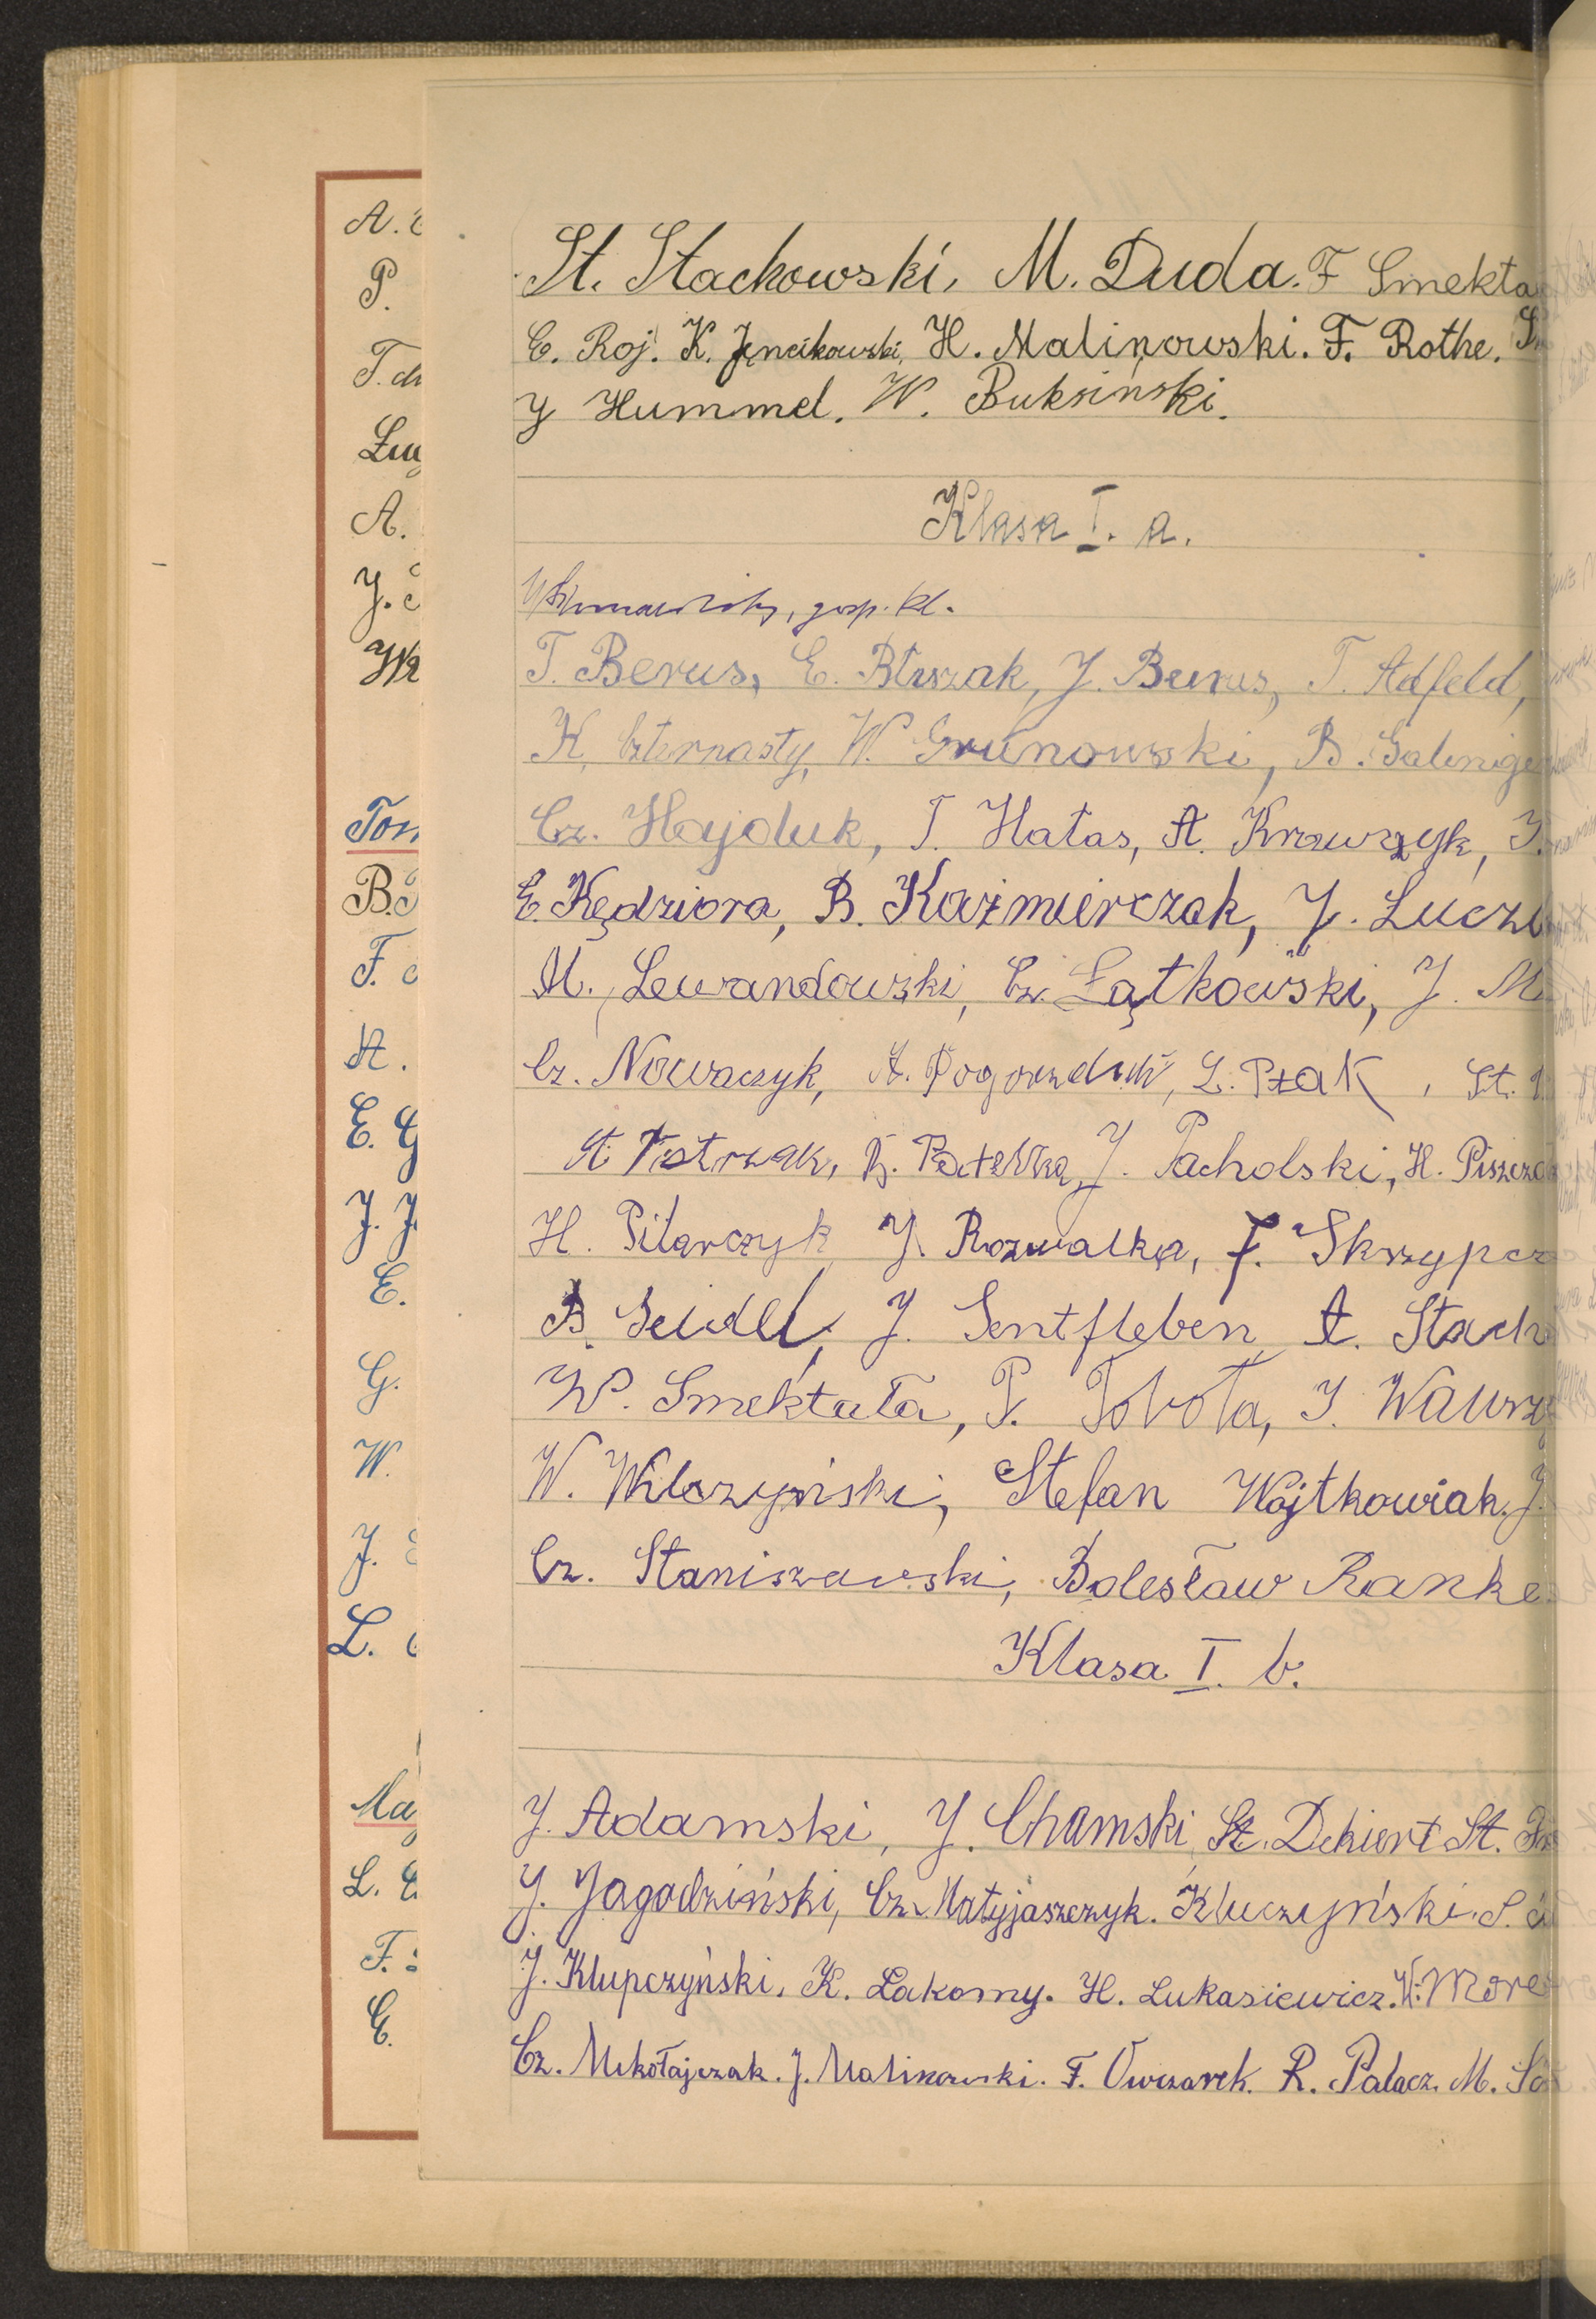 A.
P.
T.
A.
J.
B.
F.
A.
E. G
J. J
E.
G.
W.
J.
L.
L.
F.
E.
St. Stachowski, M. Duda. F Smekta
E. Roj. K. H. Malinowski. F. Rothe.
J Hummel. W. Buksiński.
Klasa I. a.
gosp. kl.
T. Berus, E. J. T. Adfeld,
K. Czternasty, W. Grunowski, B.
Cz. Hajduk, T. Hałas, A. Krawczyk, J.
E. Kędziora, B. Kaźmierczak, J. Łucz
M. Lewandowski, Cz. Łątkowski, J. M
Cz. Nowaczyk, A. L. Ptak, St.
A. B. J. Pacholski, H. Piszcz
H. Pilarczyk J. Rozwalka, F. Skrzypcz
B. Seidel, J. Sentfleben A. Stach
W. Smektała, P. Toboła, J. Wawrz
W. Wilczyński, Stefan Wojtkowiak. J.
Cz. Staniszewski, Bolesław Ranke
Klasa I. b.
J. Adamski, J. Chamski, St. Dekiert St.
J. Jagodziński, Cz. Matyjaszczyk. Kluczyński. S.
J. Klupczyński, K. Łakomy. H. Łukasiewicz. W. More
Cz. Mikołajczak. J. Malinowski. F. Owczarek. R. Palacz. M.